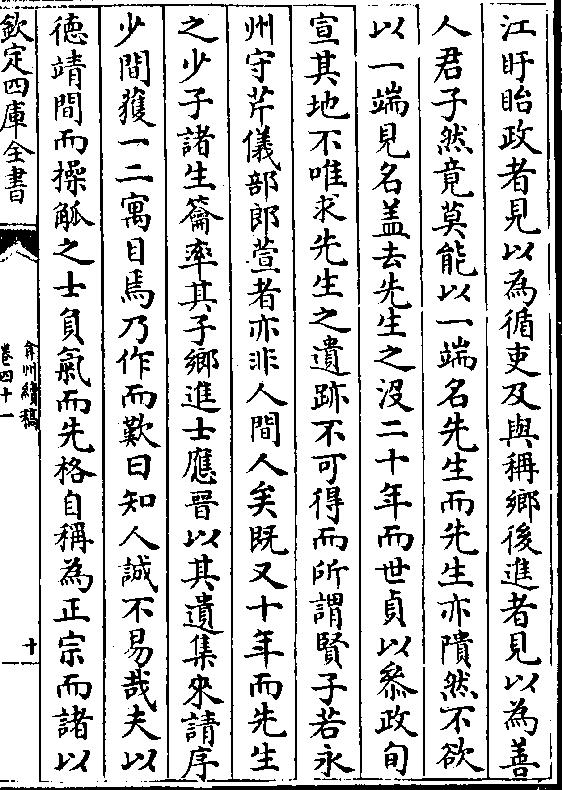 江盱眙政者見以為循吏及與稱鄉後進者見以為善
人君子然竟莫能以一端名先生而先生亦隤然不欲
以一端見名盖去先生之没二十年而世貞以叅政旬
宣其地不唯求先生之遺跡不可得而所謂賢子若永
州守芹儀部郎萱者亦非人間人矣既又十年而先生
之少子諸生籥率其子鄉進士應晋以其遺集來請序
少間獲一二寓目焉乃作而歎曰知人誠不易哉夫以
徳靖間而操觚之士負氣而先格自稱為正宗而諸以
欽定四庫全書
弇州續稿
卷四十一
十